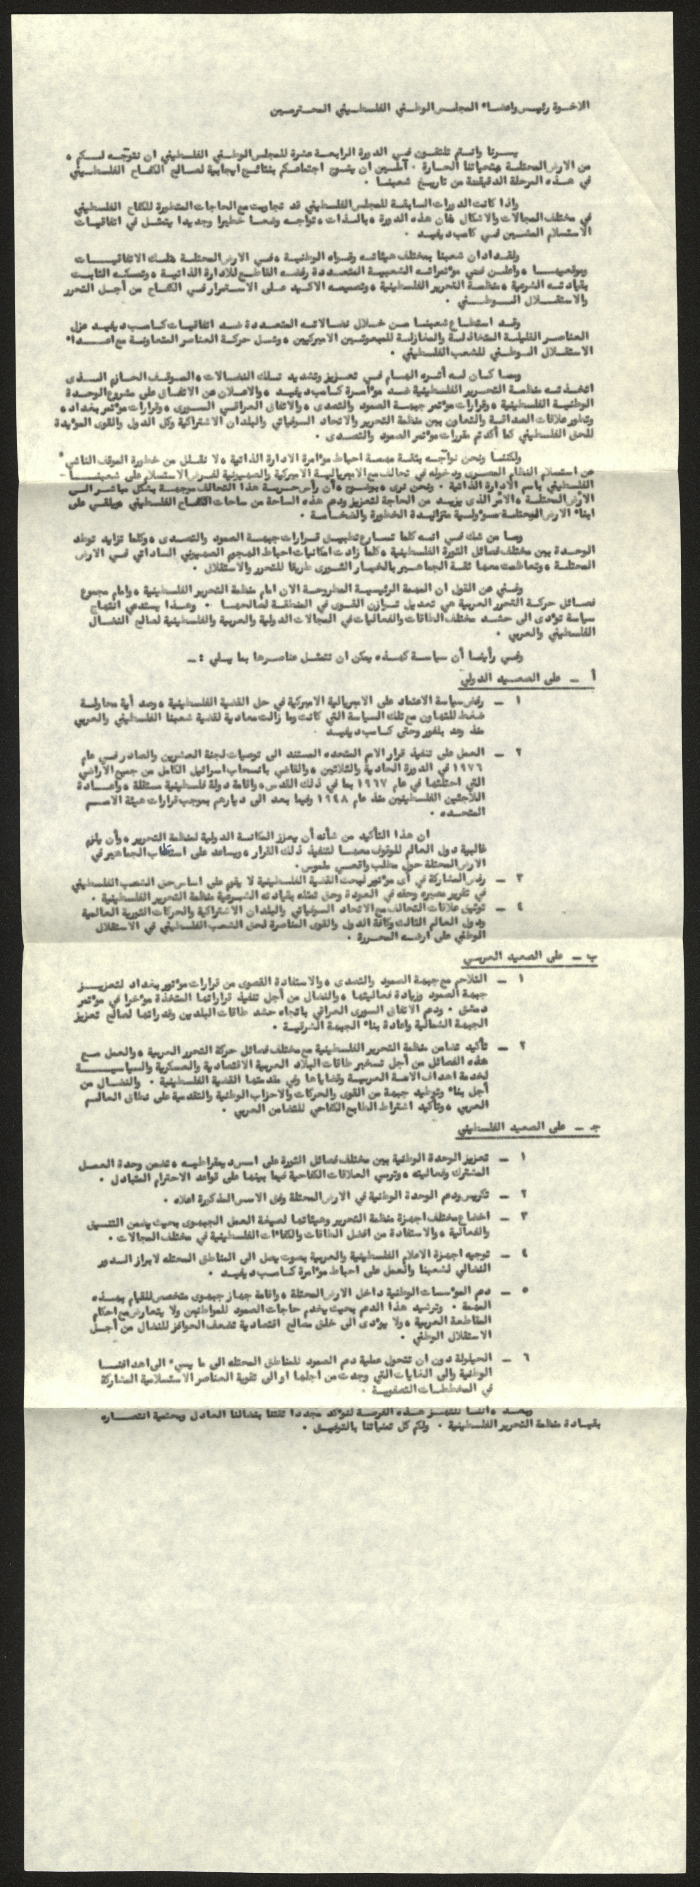 الاخوة رئيس واعضاء المجلس الوطني الفلسطيني المحترمين
يسرنا وانتم تلتقون في الدورة الرابعة عشرة للمجلس الوطني الفلسطيني ان نتوجه لكم ،
من الارض المحتلة بتحياتنا الحارة . آملين ان يتوج اجتماعكم بنتائج ايجابية لصالح الكفاح الفلسطيني
في هذه المرحلة الدقيقة من تاريخ شعبنا .
واذا كانت الدورات السابقة للمجلس الفلسطيني قد تجاوبت مع الحاجات المتغيرة للكفاح الفلسطيني
في مختلف المجالات والاشكال فان هذه الدورة ، بالذات ، تواجه وضعا خطيرا وجديدا يتمثل في اتفاقيات
الاستسلام المشين في كامب ديفيد .
ولقد ادان شعبنا بمختلف هيئاته وقواه الوطنية ، في الارض المحتلة هذه الاتفاقيات
وموقعيها ، واعلن في مؤتمراته الشعبية المتعددة رفضه القاطع للادارة الذاتية ، وتمسكه الثابت
بقيادته الشرعية ، منظمة التحرير الفلسطينية ، وتصميمه الاكيد على الاستمرار في الكفاح من أجل التحرر
والاستقلال الوطني .
وقد استطاع شعبنا من خلال نضالاته المتعددة ضد اتفاقيات كامب ديفيد عزل
العناصر القليلة المتخاذلة والمغازلة للمبعوثين الاميركيين ، وشل حركة العناصر المتعاونة مع اعداء
الاستقلال الوطني للشعب الفلسطيني .
ومما كان له أثره الهام في تعزيز وتشديد تلك النضالات ، الموقف الحازم الذي
اتخذته منظمة التحرير الفلسطينية ضد مؤامرة كامب ديفيد ، والاعلان عن الاتفاق على مشروع الوحدة
الوطنية الفلسطينية ، وقرارات مؤتمر جبهة الصمود والتصدى ، والاتفاق العراقي السورى ، وقرارات مؤتمر بغداد ،
وتطور علاقات الصداقة والتعاون بين منظمة التحرير والاتحاد السوفياتي والبلدان الاشتراكية وكل الدول والقوى المؤيدة
للحق الفلسطيني كما أكدتم مقررات مؤتمر الصمود والتصدى .
ولكننا ونحن نواجه بثقة مهمة احباط مؤامرة الادارة الذاتية ، لا نقلل من خطورة الموقف الناشئ
عن استسلام النظام المصرى ودخوله في تحالف مع الامبريالية الاميركية والصهيونية لفرض الاستسلام على شعبنا
الفلسطيني باسم الادارة الذاتية . ونحن نرى ، بوضوح ، أن رأس حربة هذا التحالف موجهة بشكل مباشر الى
الارض المحتلة ، الامر الذى يزيد من الحاجة لتعزيز ودعم هذه الساحة من ساحات الكفاح الفلسطيني ويلقي على
ابناء الارض المحتلة مسؤولية متزايدة الخطورة والضخامة .
وما من شك في انه كلما تسارع تطبيق قرارات جبهة الصمود والتصدى ، وكلما تزايد توطد
الوحدة بين مختلف فصائل الثورة الفلسطينية ، كلما زادت امكانيات احباط الهجوم الصهيوني الساداتي في الارض
المحتلة ، وتعاظمت معها ثقة الجماهير بالخيار الثورى طريقا للتحرر والاستقلال .
وغني عن القول ان المهمة الرئيسية المطروحة الان امام منظمة التحرير الفلسطينية ، وامام مجموع
فصائل حركة التحرر العربية هي تعديل توازن القوى في المنطقة لصالحها . وهذا يستدعي انتهاج
سياسة تؤدى الى حشد مختلف الطاقات والفعاليات في المجالات الدولية والعربية والفلسطينية لصالح النضال
الفلسطيني والعربي .
وفي رأينا أن سياسة كهذه يمكن ان تتمثل عناصرها بما يلي : ـ
أ ـ على الصعيد الدولي
١ ـ رفض سياسة الاعتماد على الامبريالية الاميركية في حل القضية الفلسطينية ، وصد أية محاولة
ضغط للتهاون مع تلك السياسة التي كانت وما زالت معادية لقضية شعبنا الفلسطيني والعربي
منذ وعد بلفور وحتى كامب ديفيد .
٢ ـ العمل على تنفيذ قرار الامم المتحده المستند الى توصيات لجنة العشرين والصادر في عام
١٩٧٦ في الدورة الحادية والثلاثين ، والقاضي بانسحاب اسرائيل الكامل من جميع الاراضي
التي احتلتها في عام ١٩٦٧ بما في ذلك القدس ، واقامة دولة فلسطينية مستقلة ، واعادة
اللاجئين الفلسطينين منذ عام ١٩٤٨ وفيما بعد الى ديارهم بموجب قرارات هيئة الامم
المتحده .
ان هذا التأكيد من شأنه أن يعزز المكانة الدولية لمنظمة التحرير ، وأن يلزم
غالبية دول العالم للوقوف معها لتنفيذ ذلك القرار ، ويساعد على استقطاب الجماهير في
الارض المحتلة حول مطلب واقعي ملموس .
٣ ـ رفض المشاركة في أى مؤتمر لبحث القضية الفلسطينية لا يقوم على اساس حق الشعب الفلسطيني
في تقرير مصيره وحقه في العودة وحق تمثله بقيادته الشرعية منظمة التحرير الفلسطينية .
٤ ـ توثيق علاقات التحالف مع الاتحاد السوفياتي والبلدان الاشتراكية والحركات الثورية العالمية
ودول العالم الثالث وكافة الدول والقوى المناصرة لحق الشعب الفلسطيني في الاستقلال
الوطني على ارضه المحررة .
ب ـ على الصعيد العربي
١ ـ التلاحم مع جبهة الصمود والتصدى ، والاستفادة القصوى من قرارات مؤتمر بغداد لتعزيز
جبهة الصمود وزيادة فعاليتها ، والنضال من أجل تنفيذ قراراتها المتخذة مؤخرا في مؤتمر
دمشق . ودعم الاتفاق السورى العراقي باتجاه حشد طاقات البلدين وقدراتها لصالح تعزيز
الجبهة الشمالية واعادة بناء الجبهة الشرقية .
٢ ـ تأكيد تضامن منظمة التحرير الفلسطينية مع مختلف فصائل حركة التحرر العربية ، والعمل مع
هذه الفصائل من أجل تسخير طاقات البلاد العربية الاقتصادية والعسكرية والسياسية
لخدمة اهداف الامة العربية وقضاياها وفي مقدمتها القضية الفلسطينية . والنضال من
أجل بناء وتوطيد جبهة من القوى والحركات والاحزاب الوطنية والتقدمية على نطاق العالم
العربي ، وتأكيد اشتراط الطابع الكفاحي للتضامن العربي .
جـ ـ على الصعيد الفلسطيني
١ ـ تعزيز الوحدة الوطنية بين مختلف فصائل الثورة على اسس ديمقراطية ، تضمن وحدة العمل
المشترك وفعاليته ، وترسي العلاقات الكفاحية فيما بينها على قواعد الاحترام المتبادل .
٢ ـ تكريس ودعم الوحدة الوطنية في الارض المحتلة وفق الاسس المذكورة اعلاه .
٣ ـ اخضاع مختلف اجهزة منظمة التحرير وهيئاتها لصيغة العمل الجبهوى بحيث يضمن التنسيق
والفعالية ، والاستفادة من افضل الطاقات والكفاءات الفلسطينية في مختلف المجالات .
٤ ـ توجيه اجهزة الاعلام الفلسطينية والعربية بصوت يصل الى المناطق المحتله لابراز الدور
النضالي لشعبنا والعمل على احباط مؤامرة كامب ديفيد .
٥ ـ دعم المؤسسات الوطنية داخل الارض المحتلة ، واقامة جهاز جبهوى متخصص للقيام بهذه
المهمة . وترشيد هذا الدعم بحيث يخدم حاجات الصمود للمواطنين ولا يتعارض مع احكام
المقاطعة العربية ، ولا يؤدى الى خلق مصالح اقتصادية تضعف الحوافز للنضال من أجل
الاستقلال الوطني .
٦ ـ الحيلولة دون ان تتحول عملية دعم الصمود للمناطق المحتله الى ما يسيء الى اهدافنا
الوطنية والى الغايات التي وجدت من اجلها او الى تقوية العناصر الاستسلامية المشاركة
في المخططات التصفوية .
وبعد ، اننا ننتهز هذه الفرصة لنؤكد مجددا ثقتنا بنضالنا العادل وبحتمية انتصاره
بقيادة منظمة التحرير الفلسطينية . ولكم كل تمنياتنا بالتوفيق .